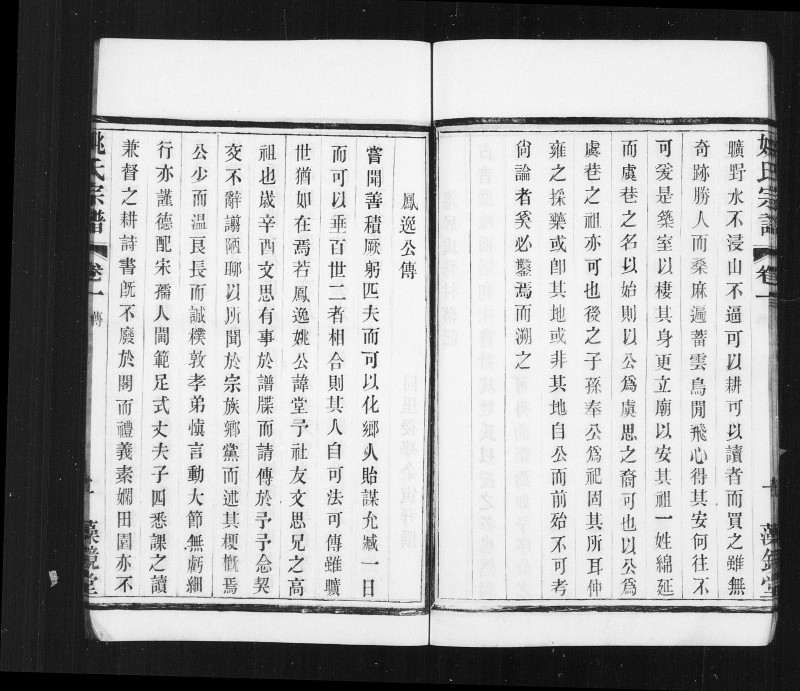 姚氏宗譜
卷一
藻鏡堂
曠野水不浸山不逼可以耕可以讀者而買之雖無
奇跡勝人而桑麻遍蓄雲鳥閒飛心得其安何往不
可爰是築室以棲其身更立廟以安其祖一姓綿延
而虞巷之名以始則以公爲虞思之裔可也以公爲
虞巷之祖亦可也後之子孫奉公爲祀固其所耳仲
雍之採藥或卽其地或非其地自公而前殆不可考
尙論者奚必鑿焉而溯之
鳳逸公傳
嘗聞善積厥躬匹夫而可以化鄉人貽謀允臧一日
而可以垂百世二者相合則其人自可法可傳雖曠
世猶如在焉若鳳逸姚公諱堂予社友文思兄之高
祖也歲辛酉文思有事於譜牒而請傳於予予念契
交不辭謭陋聊以所聞於宗族鄉黨而述其梗槪焉
公少而温良長而誠樸敦孝弟愼言動大節無虧細
行亦謹德配宋孺人閫範足式丈夫子四悉課之讀
兼督之耕詩書旣不廢於閣而禮義素嫻田園亦不
姚氏宗譜
卷一
傳
藻鏡堂